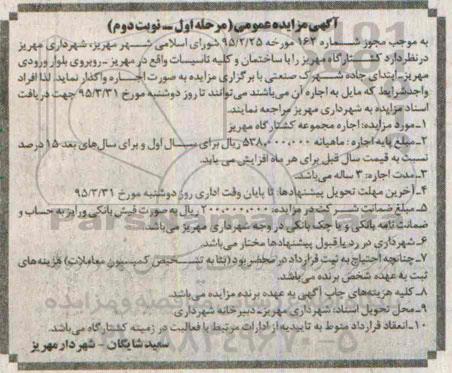 آگهی مزایده عمومی (مرحله اول - نوبت دوم)
به موجب مجوز شماره ۱۶۲ مورخه ۹۵/۲/۲۵ شورای اسلامی شهر مهریز، شهرداری مهریز
در نظر دارد کشتارگاه مهریز را با ساختمان و کلیه تاسیسات واقع در مهریز - روبروی بلوار ورودی
مهریز - ابتدای جاده شهرک صنعتی با برگزاری مزایده به صورت اجاره واگذار نماید. لذا افراد
واجد شرایط که مایل به اجاره آن می‌باشند می‌توانند تا روز دوشنبه مورخ ۹۵/۳/۳۱ جهت دریافت
اسناد مزایده به شهرداری مهریز مراجعه نمایند.
۱- مورد مزایده: اجاره مجموعه کشتارگاه مهریز
۲- مبلغ پایه اجاره: ماهیانه ۵۳۸,۰۰۰,۰۰۰ ریال برای سال اول و برای سال‌های بعد ۱۵ درصد
نسبت به قیمت سال قبل برای هر ماه افزایش می یابد.
۳- مدت اجاره: ۳ ساله می‌باشد.
۴- آخرین مهلت تحویل پیشنهادها: تا پایان وقت اداری روز دوشنبه مورخ ۹۵/۳/۳۱
۵- مبلغ ضمانت شرکت در مزایده: ۲۰۰,۰۰۰,۰۰۰ ریال به صورت فیش بانکی واریز به حساب و
ضمانت نامه بانکی و یا چک بانکی در وجه شهرداری مهریز می‌باشد.
۶- شهرداری در رد یا قبول پیشنهادها مختار می‌باشد.
۷- چنانچه احتیاج به ثبت قرارداد در محضر بود (بنا به تشخیص کمیسیون معاملات) هزینه‌های
ثبت به عهده شخص برنده می‌باشد.
۸- کلیه هزینه‌های چاپ آگهی به عهده برنده مزایده می‌باشد.
۹- محل تحویل اسناد: شهرداری مهریز - دبیرخانه شهرداری
۱۰- انعقاد قرارداد منوط به تاییدیه از ادارات مرتبط با فعالیت در زمینه کشتارگاه می‌باشد.
سعید شایگان - شهردار مهریز